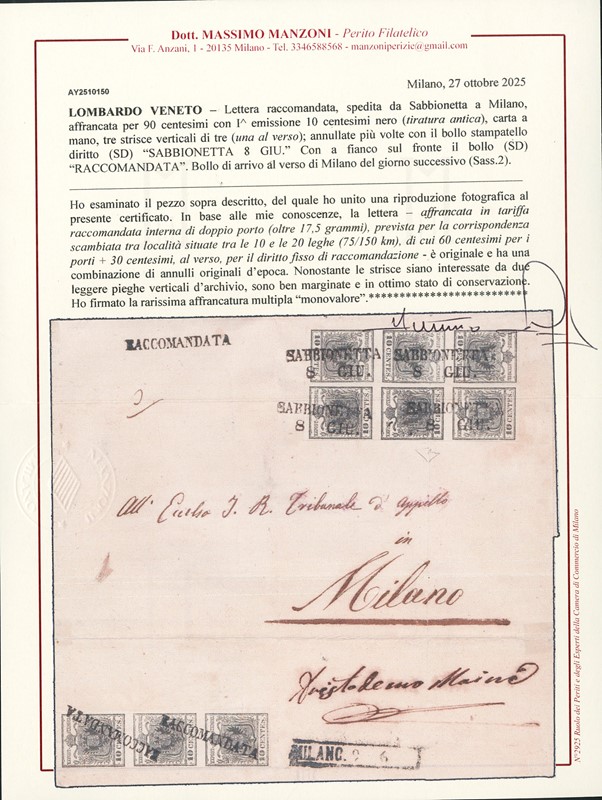 Dott. MASSIMO MANZONI - Perito Filatelico
Via F. Anzani, 1 - 20135 Milano - Tel. 3346588568 - manzoniperizie@gmail.com
AY2510150
Milano, 27 ottobre 2025
LOMBARDO VENETO – Lettera raccomandata, spedita da Sabbionetta a Milano,
affrancata per 90 centesimi con I^ emissione 10 centesimi nero (tiratura antica), carta a
mano, tre strisce verticali di tre (una al verso); annullate più volte con il bollo stampatello
diritto (SD) “SABBIONETTA 8 GIU.” Con a fianco sul fronte il bollo (SD)
“RACCOMANDATA”. Bollo di arrivo al verso di Milano del giorno successivo (Sass.2).
Ho esaminato il pezzo sopra descritto, del quale ho unito una riproduzione fotografica al
presente certificato. In base alle mie conoscenze, la lettera – affrancata in tariffa
raccomandata interna di doppio porto (oltre 17,5 grammi), prevista per la corrispondenza
scambiata tra località situate tra le 10 e le 20 leghe (75/150 km), di cui 60 centesimi per i
porti + 30 centesimi, al verso, per il diritto fisso di raccomandazione - è originale e ha una
combinazione di annulli originali d’epoca. Nonostante le strisce siano interessate da due
leggere pieghe verticali d’archivio, sono ben marginate e in ottimo stato di conservazione.
Ho firmato la rarissima affrancatura multipla “monovalore”.**************************
RACCOMANDATA
SABBIONETTA SABBIONETTA
8 GIU. 8 GIU.
SABBIONETTA SABBIONETTA
8 GIU. 8 GIU.
10 CENTES. 10 CENTES. 10 CENTES.
All' I. R. Tribunale d'appello
in
Milano
RACCOMANDATA RACCOMANDATA
10 CENTES. 10 CENTES. 10 CENTES.
MILANO. 9 6
N°2925 Ruolo dei Periti e degli Esperti della Camera di Commercio di Milano